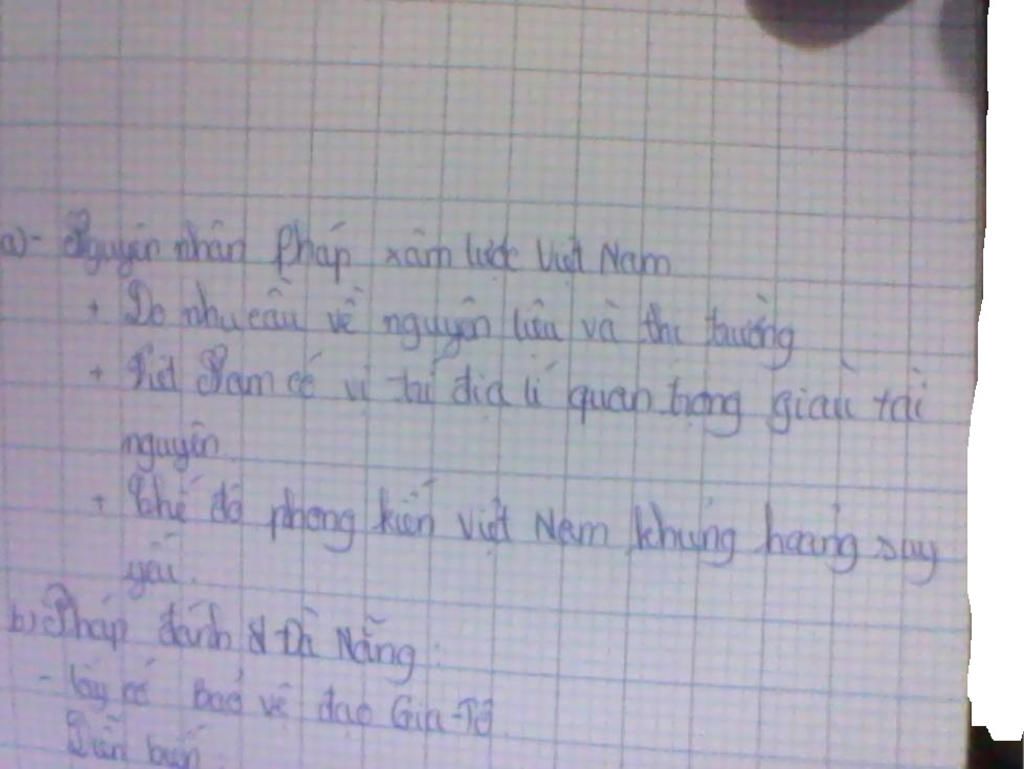 a)- Nguyên nhân Pháp xâm lược Việt Nam
+ Do nhu cầu về nguyên liệu và thị trường
+ Việt Nam có vị trí địa lí quan trọng giàu tài
nguyên
+ Chế độ phong kiến Việt Nam khủng hoảng suy
yếu.
b) Pháp đánh Đà Nẵng:
- lấy cớ bảo vệ đạo Gia-Tô
Diễn biến